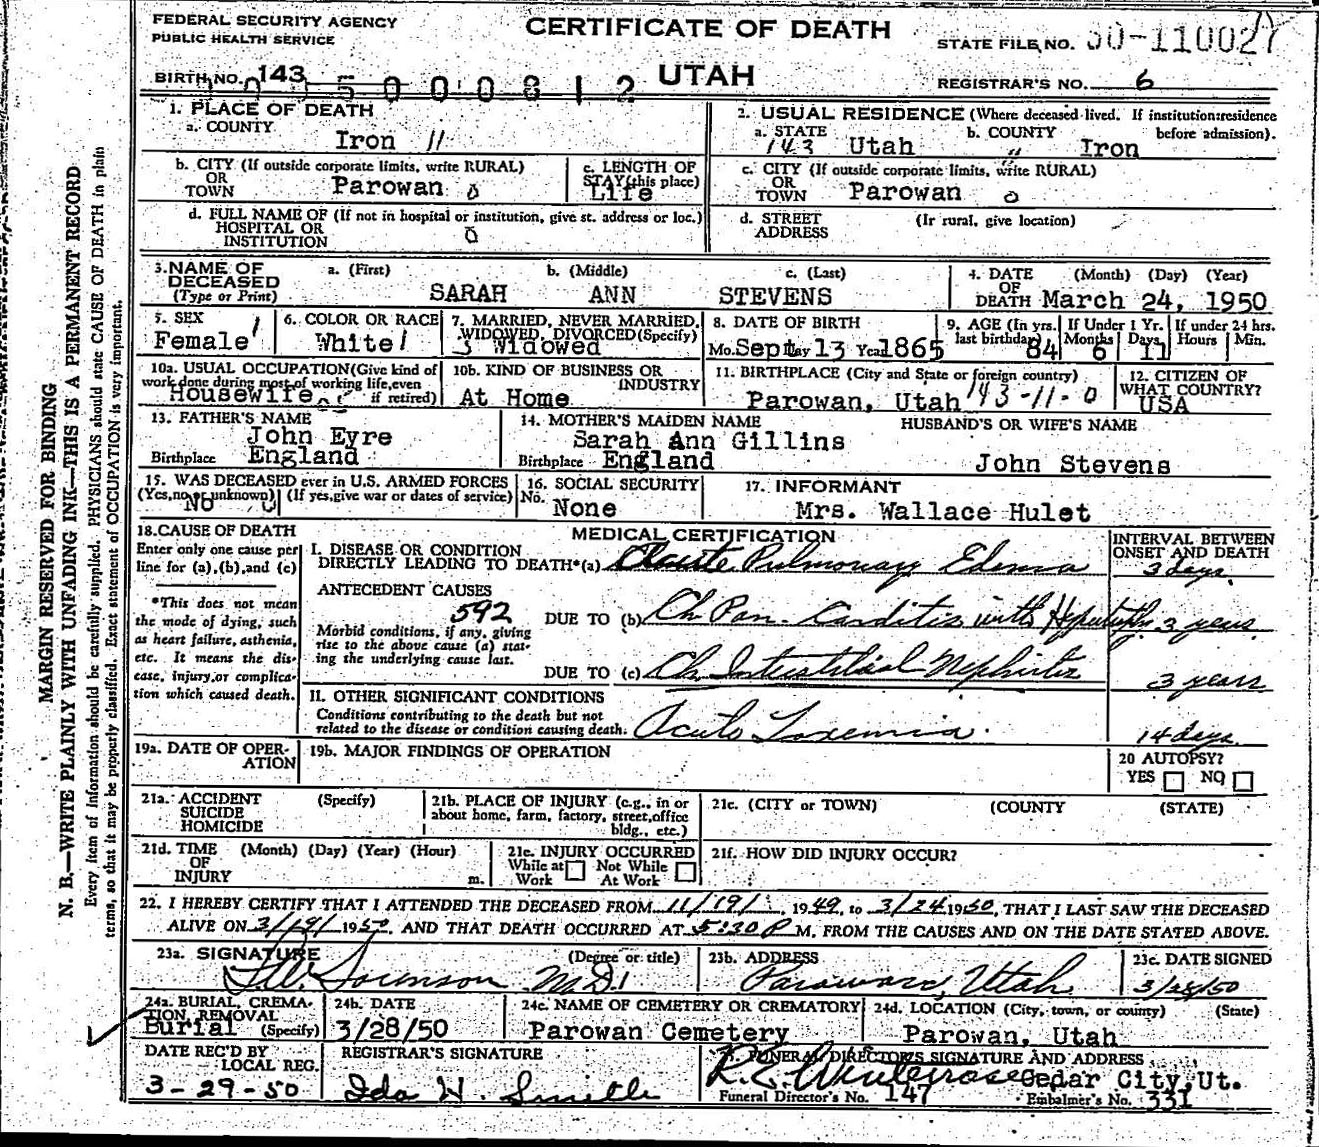 FEDERAL SECURITY AGENCY
PUBLIC HEALTH SERVICE
CERTIFICATE OF DEATH
UTAH
STATE FILE NO. 50-110027
BIRTH NO. 143
REGISTRAR'S NO. 6
1. PLACE OF DEATH
a. COUNTY
Iron 11
2. USUAL RESIDENCE (Where deceased lived. If institution: residence before admission).
a. STATE b. COUNTY
143 Utah " Iron
b. CITY (If outside corporate limits, write RURAL)
OR
TOWN Parowan 0
c. LENGTH OF
STAY (this place)
Life
c. CITY (If outside corporate limits, write RURAL)
OR
TOWN Parowan 0
d. FULL NAME OF (If not in hospital or institution, give st. address or loc.)
HOSPITAL OR
INSTITUTION 0
d. STREET (If rural, give location)
ADDRESS
3. NAME OF DECEASED
(Type or Print)
a. (First) b. (Middle) c. (Last)
SARAH ANN STEVENS
4. DATE OF DEATH (Month) (Day) (Year)
March 24, 1950
5. SEX
Female 1
6. COLOR OR RACE
White 1
7. MARRIED, NEVER MARRIED, WIDOWED, DIVORCED (Specify)
3 Widowed
8. DATE OF BIRTH
Mo. Sept Day 13 Year 1865
9. AGE (In yrs. last birthday) 84
If Under 1 Yr. Months 6 Days 11
If under 24 hrs. Hours Min.
10a. USUAL OCCUPATION (Give kind of work done during most of working life, even if retired)
Housewife
10b. KIND OF BUSINESS OR INDUSTRY
At Home
11. BIRTHPLACE (City and State or foreign country)
Parowan, Utah 143-11-0
12. CITIZEN OF WHAT COUNTRY?
USA
13. FATHER'S NAME
John Eyre
Birthplace England
14. MOTHER'S MAIDEN NAME
Sarah Ann Gillins
Birthplace England
HUSBAND'S OR WIFE'S NAME
John Stevens
15. WAS DECEASED ever in U.S. ARMED FORCES
(Yes, no or unknown) (If yes, give war or dates of service)
No 0
16. SOCIAL SECURITY No.
None
17. INFORMANT
Mrs. Wallace Hulet
18. CAUSE OF DEATH
Enter only one cause per line for (a), (b), and (c)
*This does not mean the mode of dying, such as heart failure, asthenia, etc. It means the disease, injury, or complication which caused death.
MEDICAL CERTIFICATION
INTERVAL BETWEEN ONSET AND DEATH
I. DISEASE OR CONDITION
DIRECTLY LEADING TO DEATH* (a) Acute Pulmonary Edema 3 days
ANTECEDENT CAUSES
592
Morbid conditions, if any, giving rise to the above cause (a) stating the underlying cause last.
DUE TO (b) Ch Pan. Carditis with Hypertrophy 3 years
DUE TO (c) Ch. Interstitial Nephritis 3 years
II. OTHER SIGNIFICANT CONDITIONS
Conditions contributing to the death but not related to the disease or condition causing death.
Acute Toxemia. 14 days
19a. DATE OF OPERATION
19b. MAJOR FINDINGS OF OPERATION
20 AUTOPSY?
YES NO
21a. ACCIDENT (Specify)
SUICIDE
HOMICIDE
21b. PLACE OF INJURY (e.g., in or about home, farm, factory, street, office bldg., etc.)
21c. (CITY or TOWN) (COUNTY) (STATE)
21d. TIME (Month) (Day) (Year) (Hour)
OF
INJURY m.
21e. INJURY OCCURRED
While at Work Not While At Work
21f. HOW DID INJURY OCCUR?
22. I HEREBY CERTIFY THAT I ATTENDED THE DECEASED FROM 11/19/ 1949, to 3/24 1950, THAT I LAST SAW THE DECEASED
ALIVE ON 3/19/ 1950, AND THAT DEATH OCCURRED AT 5:30 P M. FROM THE CAUSES AND ON THE DATE STATED ABOVE.
23a. SIGNATURE (Degree or title)
Sorenson M.D.
23b. ADDRESS
Parowan, Utah
23c. DATE SIGNED
3/28/50
24a. BURIAL, CREMATION, REMOVAL (Specify)
Burial
24b. DATE
3/28/50
24c. NAME OF CEMETERY OR CREMATORY
Parowan Cemetery
24d. LOCATION (City, town, or county) (State)
Parowan, Utah
DATE REC'D BY LOCAL REG.
3-29-50
REGISTRAR'S SIGNATURE
Ida H. Smith
FUNERAL DIRECTOR'S SIGNATURE AND ADDRESS
Cedar City, Ut.
Funeral Director's No. 147 Embalmer's No. 331
MARGIN RESERVED FOR BINDING
N. B.—WRITE PLAINLY WITH UNFADING INK—THIS IS A PERMANENT RECORD
Every item of Information should be carefully supplied. PHYSICIANS should state CAUSE OF DEATH in plain
terms, so that it may be properly classified. Exact statement of OCCUPATION is very important.